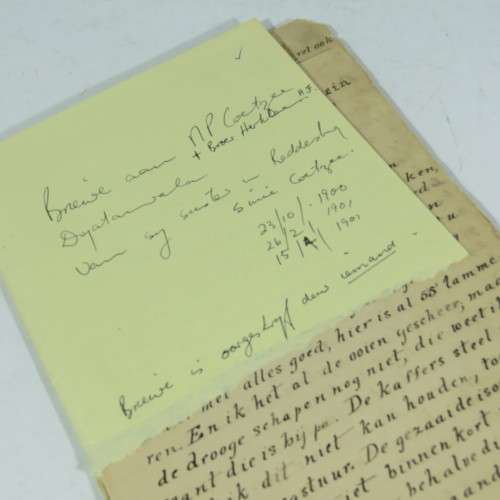 Briewe aan M P Coetzee
+ Broer Hert
Diyatalawala
van sy suster in Reddersburg
Sinnie Coetzee.
23/10/1900
26/2/1901
15/4/1901
Briewe is oorgeskryf deur iemand.
ret ook
ein
ken,
u
met alles goed, hier is al 55 lamme
ren. En ik het al de ooien gescheer, maar
de drooge schapen nog niet, die weet ik
want die is bij pa. De kaffers steel
ik dit niet kan houden, to
stuur. De gezaaide is o
iet binnen kort
behalve di
and